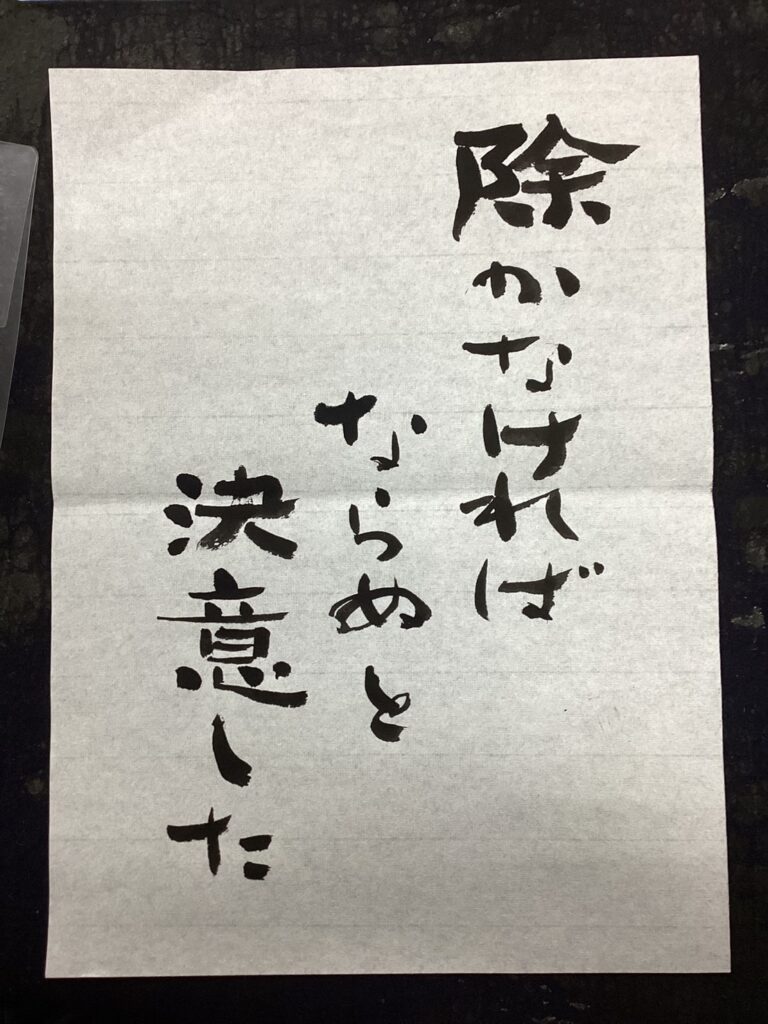 除かなければ
ならぬと
決意した